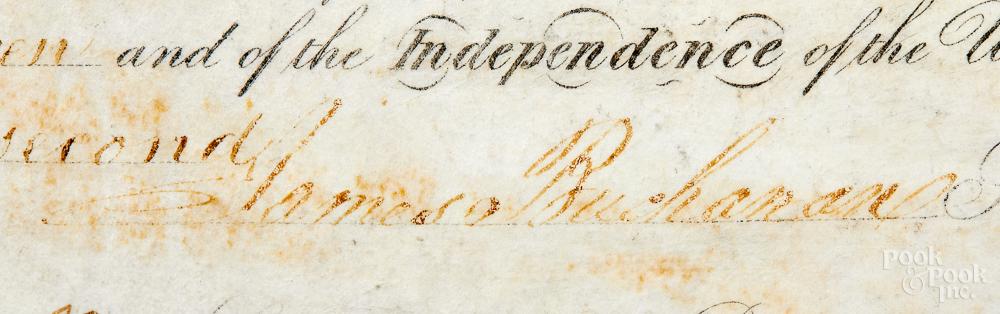 and of the Independence of the
second
James Buchanan
Pook
& Pook
Inc.